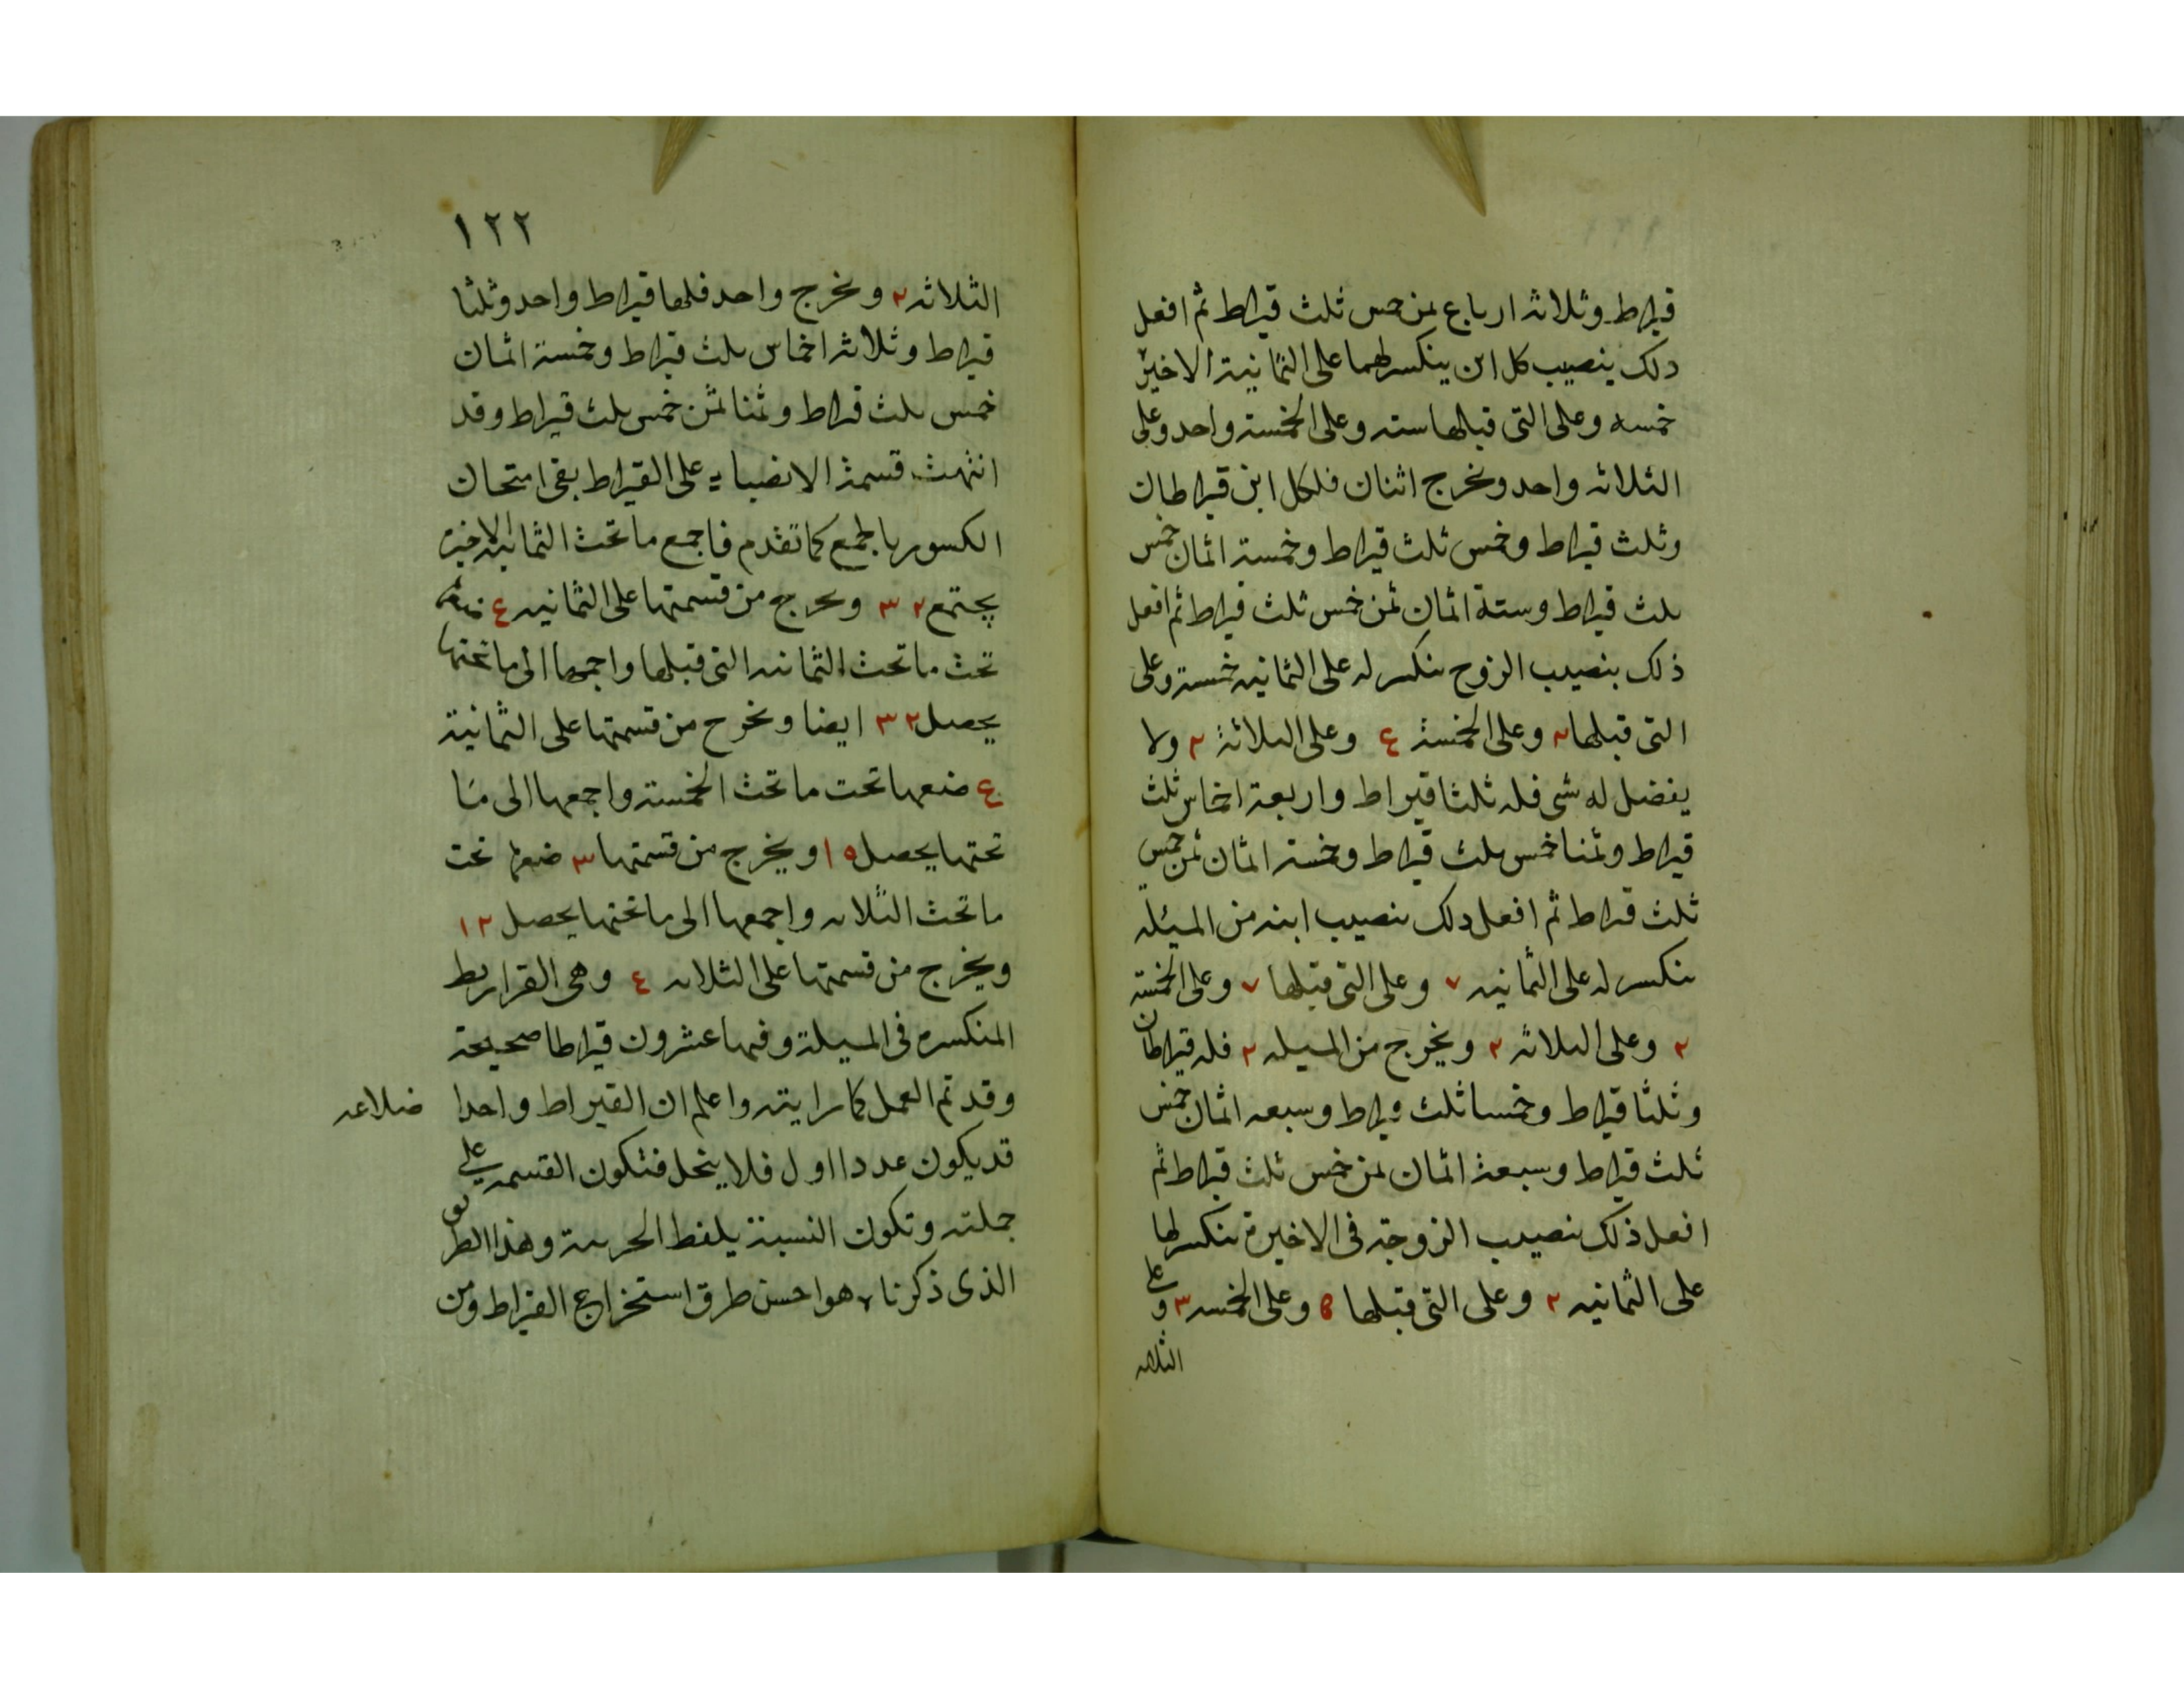 قيراط وثلاثه ارباع ثمن خمس ثلث قيراط ثم افعل
ذلك بنصيب كل ابن ينكسر لهما على الثمانية الاخيرة
خمسه وعلى التى قبلها سته وعلى الخمسة واحد وعلى
الثلاثه واحد ويخرج اثنان فلكل ابن قيراطان
وثلث قيراط وخمس ثلث قيراط وخمسة اثمان خمس
ثلث قيراط وستة اثمان ثمن خمس ثلث قيراط ثم افعل
ذلك بنصيب الزوج ينكسر له على الثمانيه خمسة وعلى
التى قبلها ٢ وعلى الخمسة ٤ وعلى الثلاثة ٢ ولا
يفضل له شى فله ثلثا قيراط واربعة اخماس ثلث
قيراط وثمنا خمس ثلث قيراط وخمسة اثمان ثمن خمس
ثلث قيراط ثم افعل ذلك بنصيب ابنه من المسئله
ينكسر له على الثمانيه ٧ وعلى التى قبلها ٧ وعلى الخمسة
٢ وعلى الثلاثه ٢ ويخرج من المسيله ٢ فله قيراطان
وثلثا قيراط وخمسا ثلث قيراط وسبعه اثمان خمس
ثلث قيراط وسبعة اثمان ثمن خمس ثلث قيراط ثم
افعل ذلك بنصيب الزوجة فى الاخيرة ينكسر لها
على الثمانيه ٢ وعلى التى قبلها ٥ وعلى الخمسه ٣ وعلى
الثلاثه
١٢٢
الثلاثه ٢ ويخرج واحد فلها قيراط واحد وثلثا
قيراط وثلاثة اخماس ثلث قيراط وخمسة اثمان
خمس ثلث قيراط وثمنا ثمن خمس ثلث قيراط وقد
انتهت قسمة الانصباء على القيراط بقى امتحان
الكسور بالجمع كما تقدم فاجمع ما تحت الثمانية الاخيرة
يجتمع ٣٢ ويخرج من قسمتها على الثمانيه ٤ ضعها
تحت ما تحت الثمانيه التى قبلها واجمعها الى ما تحتها
يحصل ٣٢ ايضا ويخرج من قسمتها على الثمانية
٤ ضعها تحت ما تحت الخمسة واجمعها الى ما
تحتها يحصل ١٥ ويخرج من قسمتها ٣ ضعها تحت
ما تحت الثلاثه واجمعها الى ما تحتها يحصل ١٢
ويخرج من قسمتها على الثلاثه ٤ وهى القراريط
المنكسره فى المسيلة وفيها عشرون قيراطا صحيحة
وقد تم العمل كما رايته واعلم ان القيراط واحدا
قد يكون عددا اول فلا ينحل فتكون القسمه على
جملته وتكون النسبة بلفظ الجزيية وهذا الطريق
الذى ذكرناه هو احسن طرق استخراج القيراط ومن